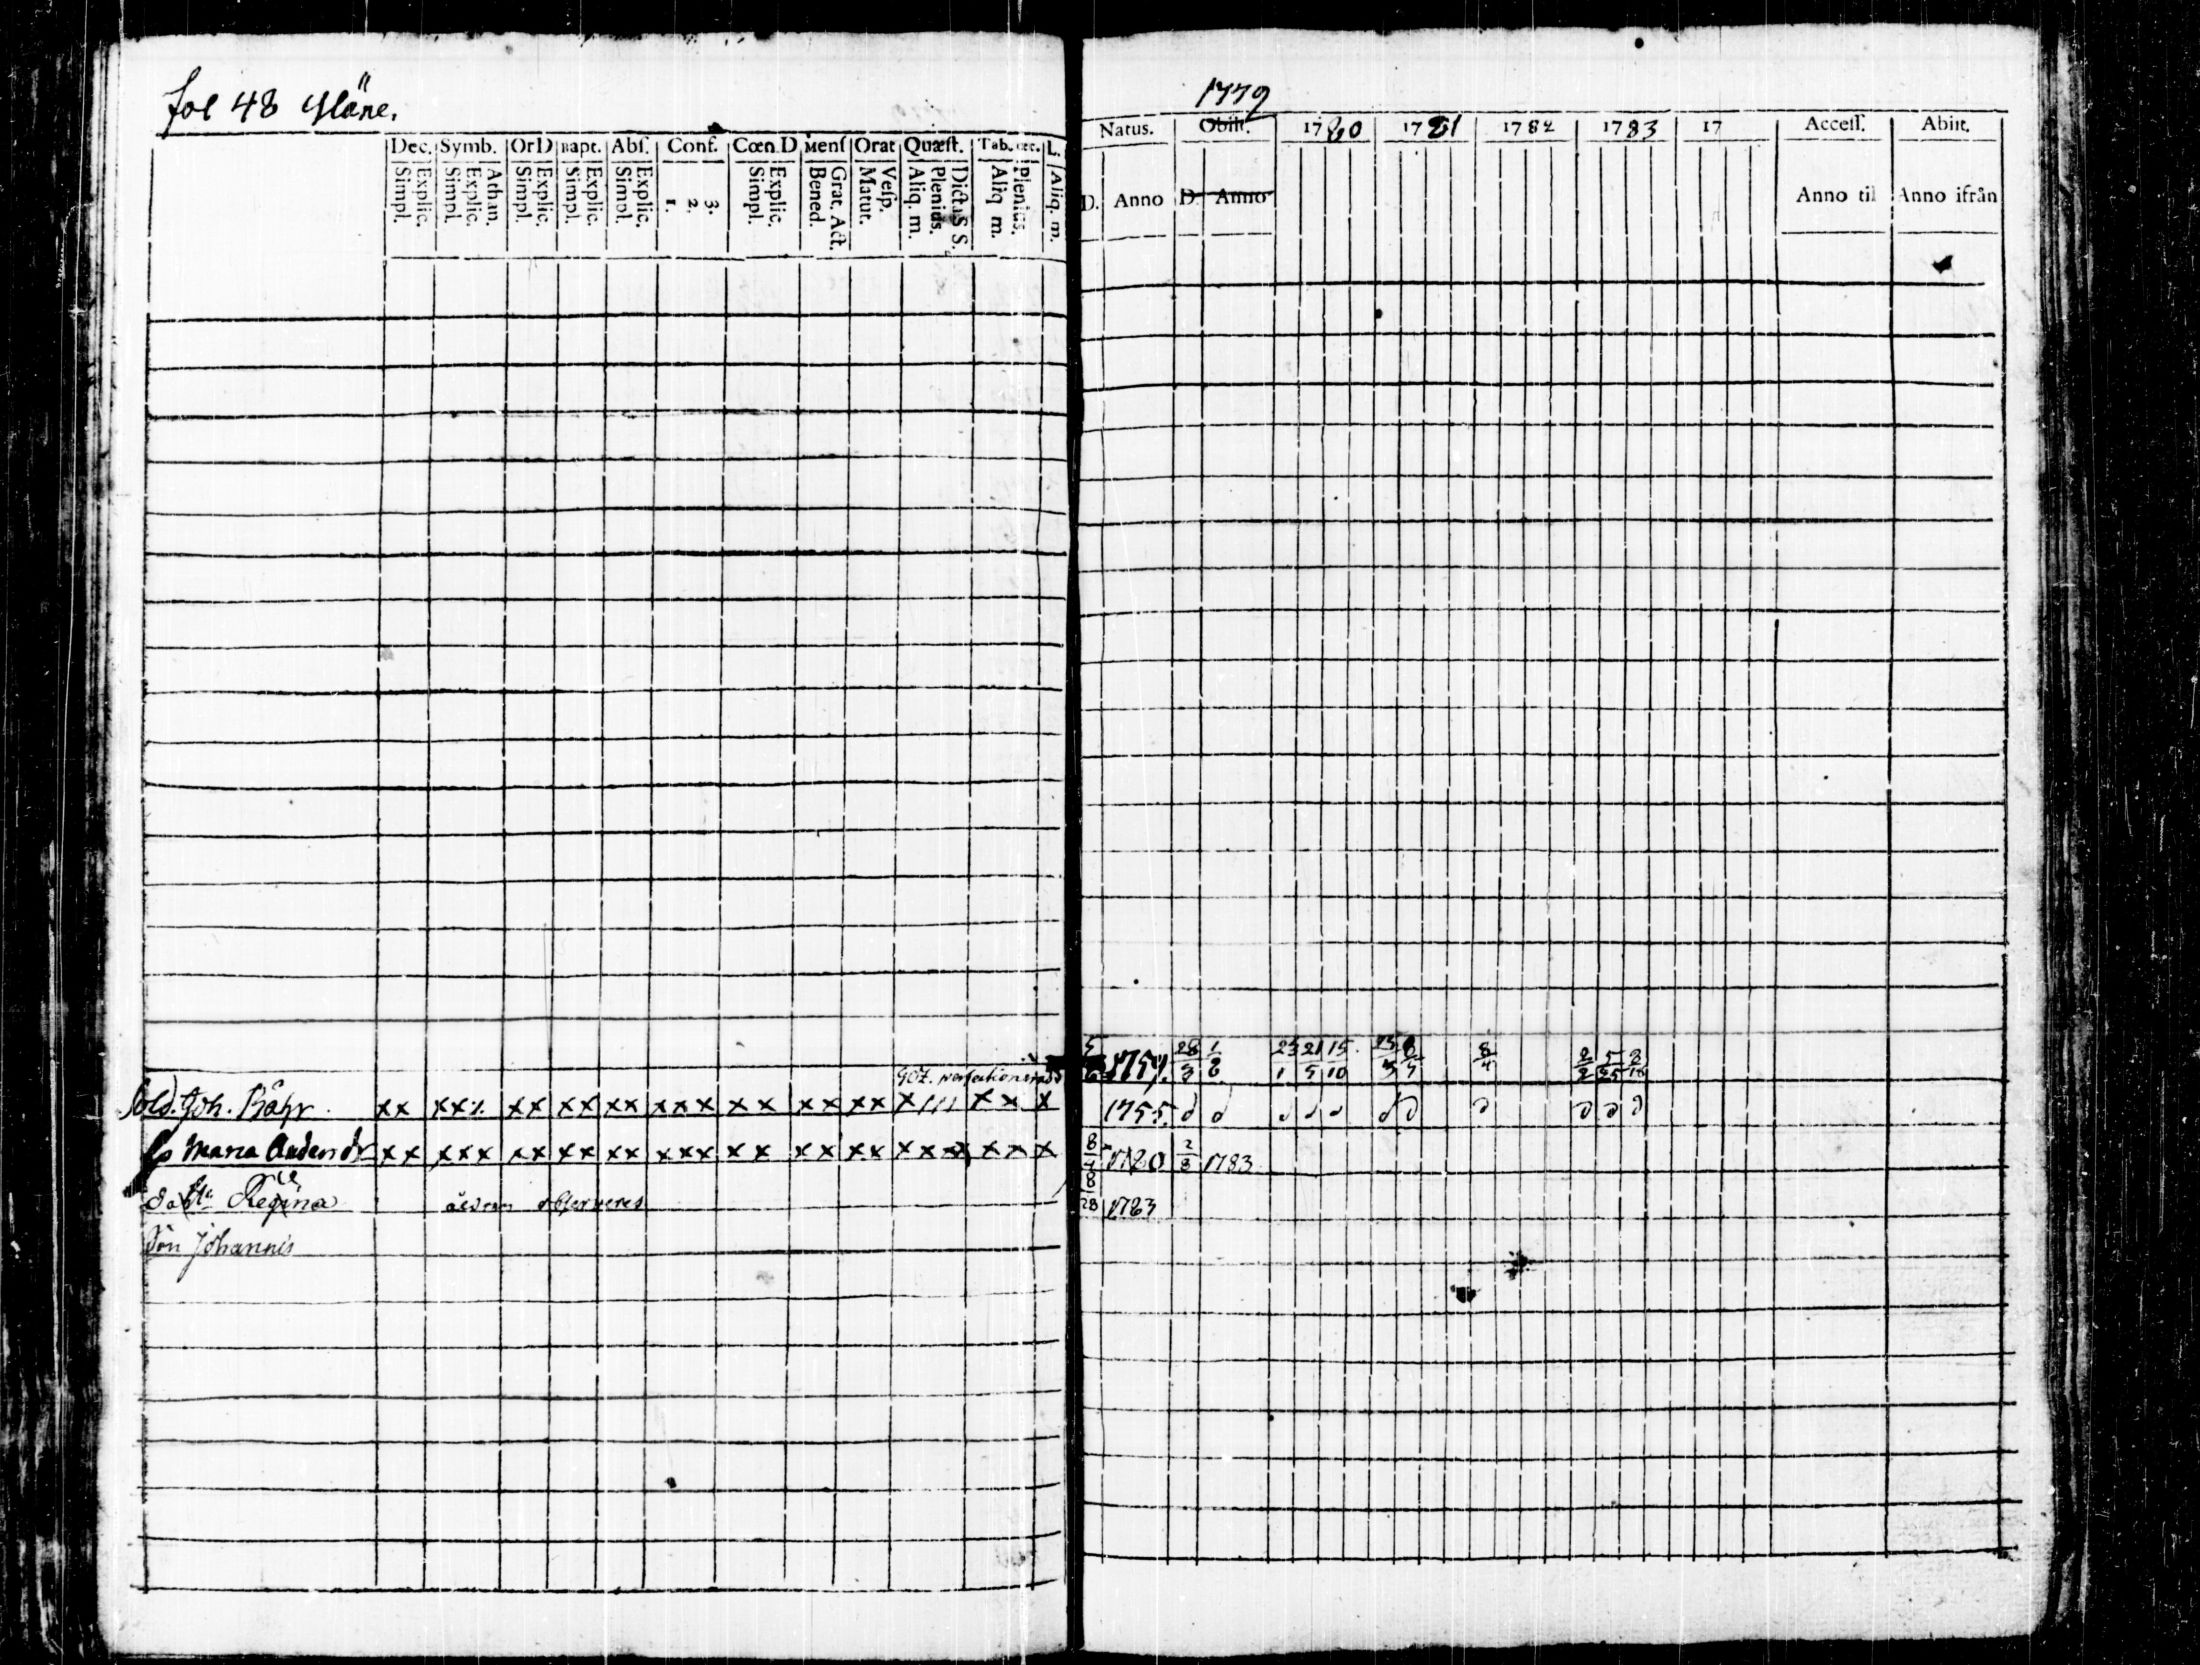 fol 48
1779
Dec. Symb. OrD Bapt. Abſ. Conf. Cœn.D Menſ Orat Quæſt. Tab. L.
Explic. Simpl. Athan. Explic. Simpl. Explic. Simpl. Explic. Simpl. Explic. Simpl. 1. 2. 3. Explic. Simpl. Grat. Act. Bened. Veſp. Matut. Dicta S S. Plenius. Aliq. m. Plenius. Aliq. m. Aliq. m.
Natus. Obiit. 1780 1781 1782 1783 17 Acceſſ. Abiit.
D. Anno D. Anno Anno til Anno ifrån
1757. 28/3 23/1 21/5 15/10 8/4
Sold. Joh. xx xx xx xx xx xxx xx xx xx x xx x 1755.
Maria xx xxx xx xx xx xxx xx xx xx xxx xxx x 1780 2/3 1783
Regina observeres 28 1783
Son Johannis